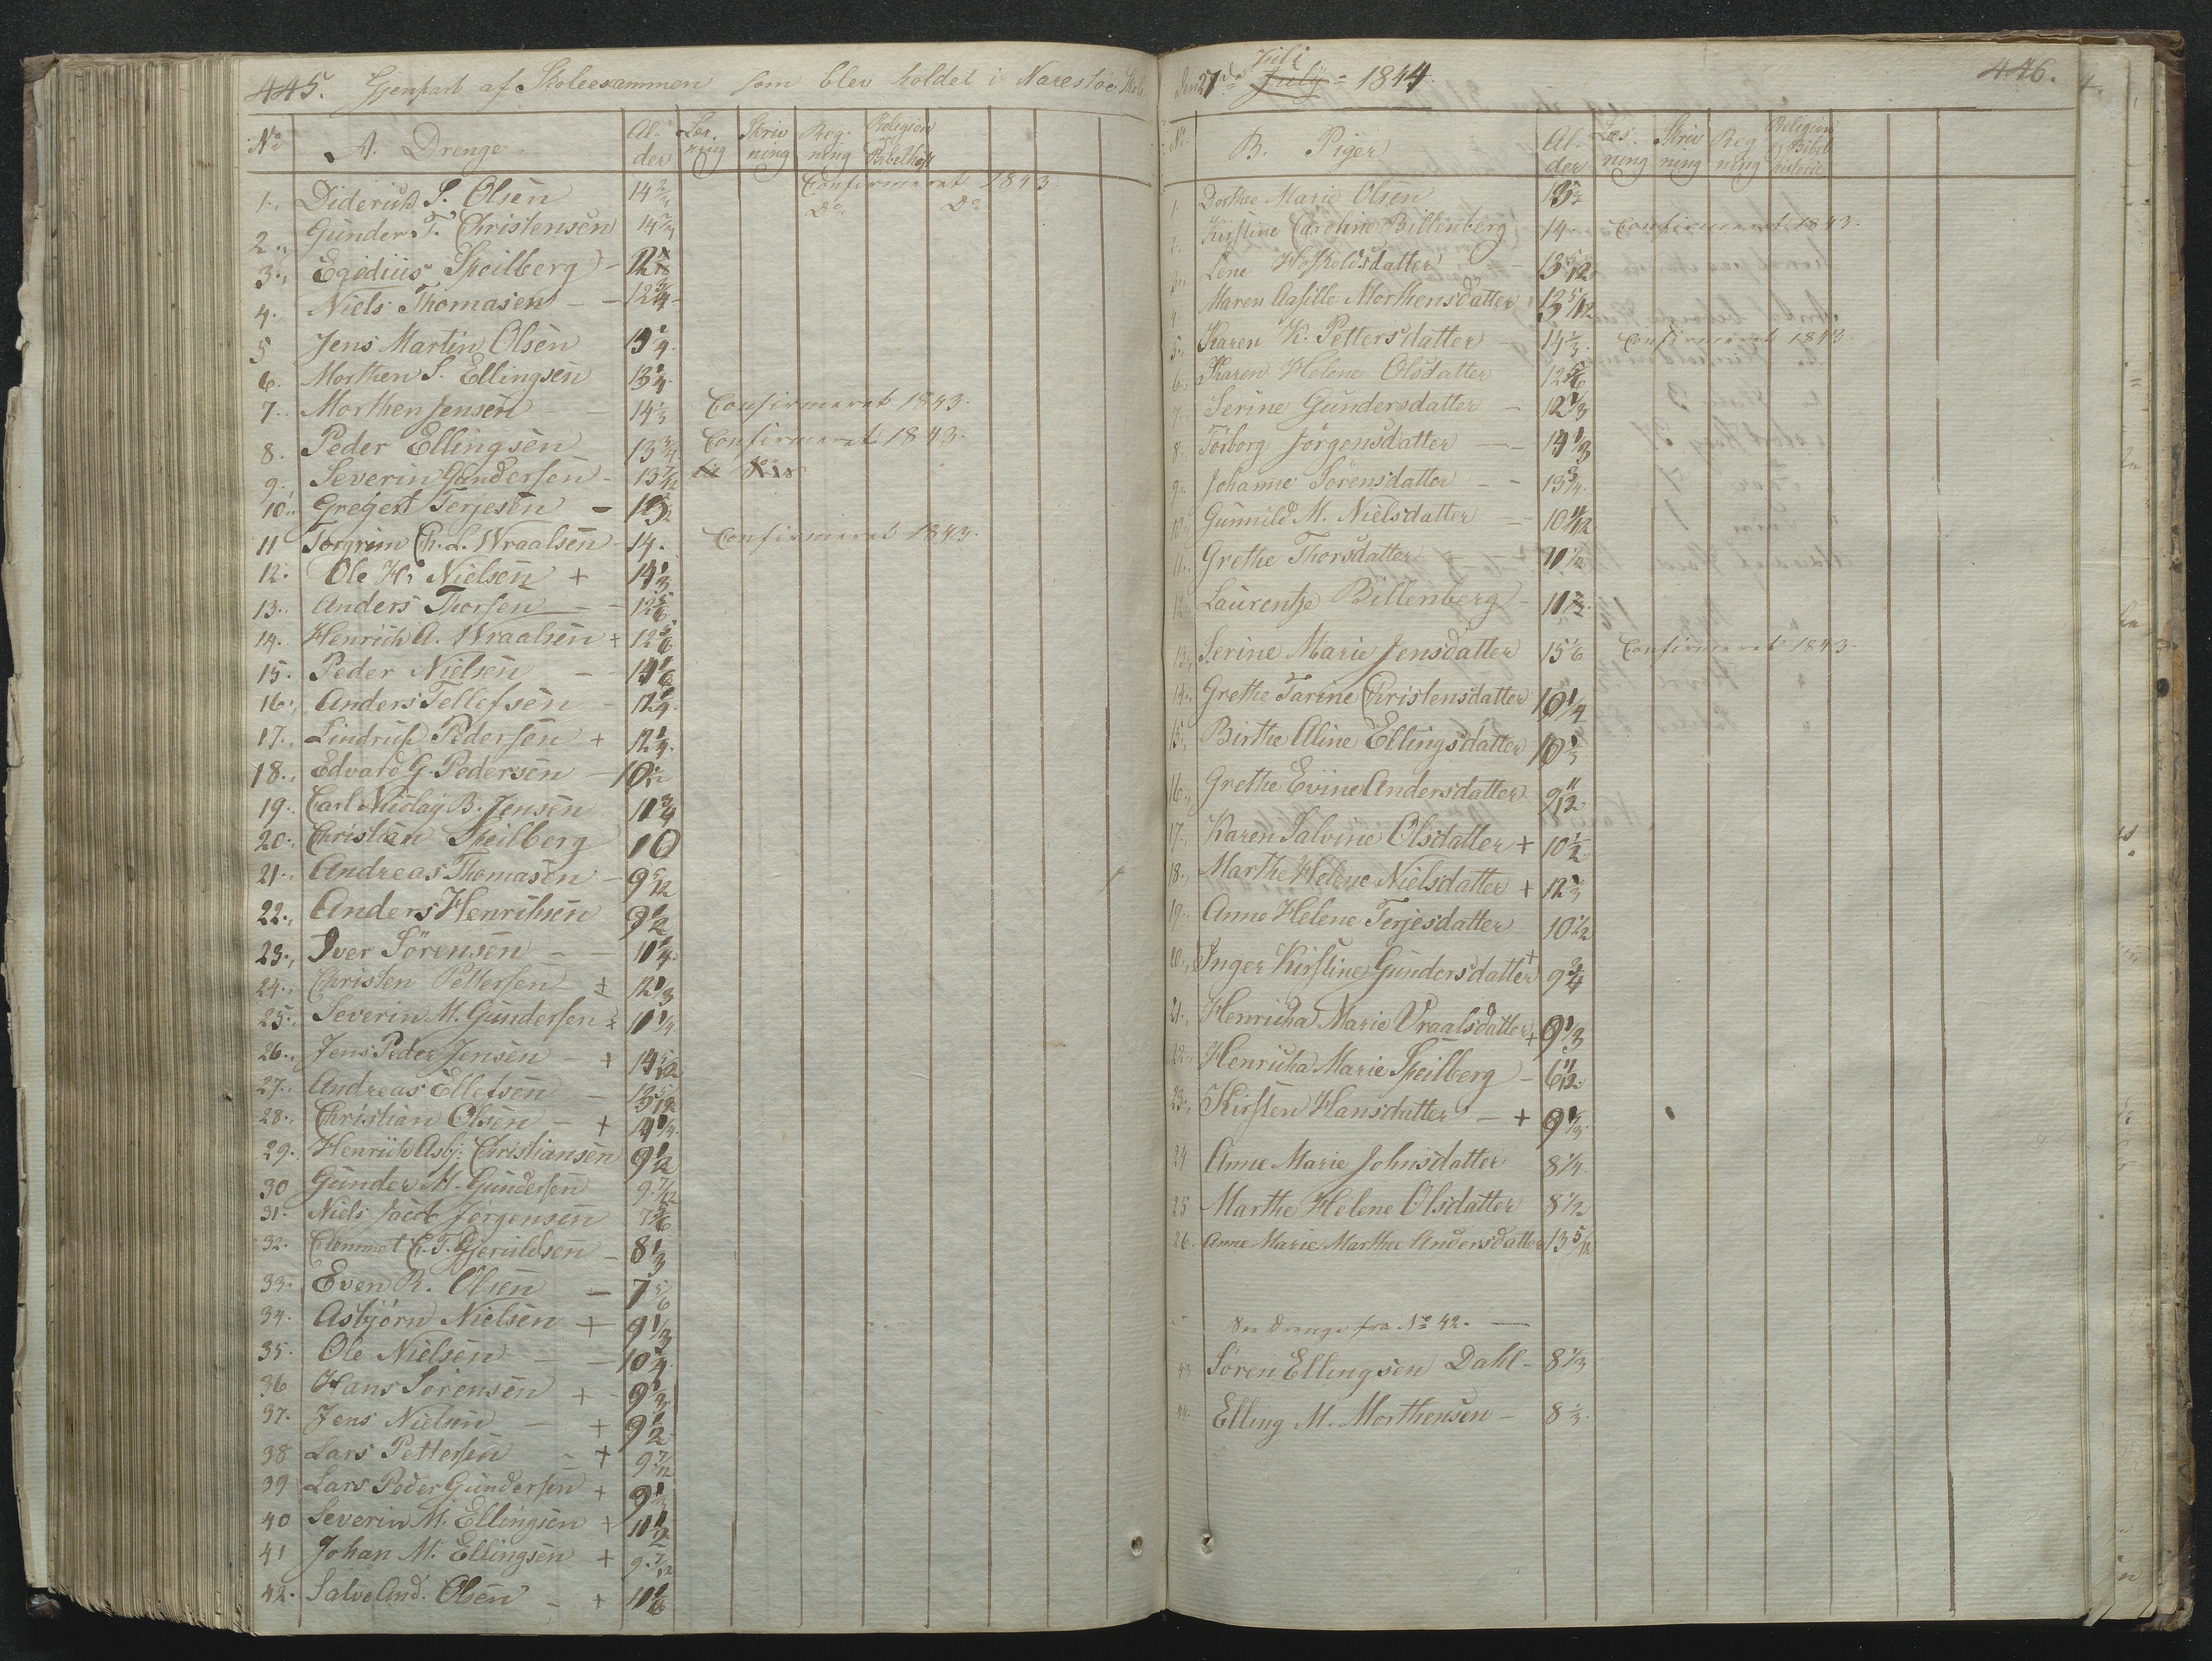 445. Gjenpart af Skoleexammen som blev holdet i Narestöe Skole
No A. Drenge Al-der Læs-ning Skriv ning Reg-ning Religion Bibelhist
1. Diderich S. Olsen 14 2/3 Confirmeret 1843
2. Gunder T. Christensen 14 2/3 Do Do
3. Egidius Speilberg - 12
4. Niels Thomasen - - 12 3/4
5 Jens Martin Olsen 13 1/4
6. Morthen S. Ellingsen 13 1/4
7. Morthen Jensen - - 14 1/3 Confirmeret 1843.
8. Peder Ellingsen 13 3/4 Confirmeret 1843.
9. Severin Gundersen - 13 7/12
10. Gregert Terjesen -
11 Torgrim Ch. L. Wraalsen - 14. Confirmeret 1843.
12. Ole H. Nielsen + 14 1/3
13. Anders Thorsen - 12 5/6
14. Henrich A. Wraalsen + 12 5/6
15. Peder Nielsen - - 14 1/6
16. Anders Tellefsen - 12 1/4
17. Lindrup Pedersen + 12 1/4
18. Edvard G. Pedersen - 10 1/2
19. Carl Nicolay B. Jensen 11 3/4
20. Christian Speilberg 10
21. Andreas Thomasen - 9 5/12
22. Anders Henrihsen 9 1/2
23. Iver Sörensen - - 11 1/4
24. Christen Pettersen - + 12 1/3
25. Severin M. Gundersen + 11 1/4
26. Jens Peder Jensen - + 14 5/12
27. Andreas Ellefsen - 13 5/12
28. Christian Olsen - + 14 1/4
29. Henrich Asbj: Christiansen 9 1/2
30 Gunder M. Gundersen 9 7/12
31. Niels Jacob Jörgensen 7 5/6
32. Clemmet C. T. Gjeruldsen - 8 1/3
33. Even R. Olsen - 7 5/6
34. Asbjörn Nielsen + 9 1/3
35. Ole Nielsen - - 10 1/4
36 Hans Sörensen + - 9 1/3
37. Jens Nielsen - + 9 1/2
38 Lars Pettersen - + 9 7/12
39 Lars Peder Gundersen + 9 1/3
40 Severin M. Ellingsen + 11 1/2
41 Johan M. Ellingsen + 9 7/12
42. Salve And. Olsen - + 11 1/6
Juli
Den 27de July = 1844. 446.
No B. Piger Al-der Læs-ning Skriv ning Reg ning Religion og Bibel historie
1. Dorthee Marie Olsen
2. Kirstine Caroline Billenberg 14 Confirmeret 1843.
3. Lene Hoskoldsdatter - 13 5/12
4. Maren Aasille Morthensdatter 13 5/12
5. Karen K. Pettersdatter - 14 1/3 Confirmeret 1843
6. Karen Helene Olsdatter 12 5/6
7. Serine Gundersdatter - 12 1/3
8. Törborg Jörgensdatter - - 14 1/3
9. Johanne Sörensdatter - - 13 3/4
10. Gunnild M. Nielsdatter - 10 11/12
11. Grethe Thorsdatter - - 11 1/2
12. Laurentze Billenberg - 11 1/2
13. Serine Marie Jensdatter 15 1/6 Confirmeret 1843.
14. Grethe Tarine Christensdatter 10 1/4
15. Birthe Aline Ellingsdatter 10 1/3
16. Grethe Evine Andersdatter 9 11/12
17. Karen Salvine Olsdatter + 10 1/2
18. Marthe Helene Nielsdatter + 12 1/4
19. Anne Helene Terjesdatter 10 1/2
20. Inger Kirstine Gundersdatter + 9 3/4
21. Henricha Marie Vraalsdatter + 9 1/3
22. Henricha Marie Speilberg - 6 11/12
23. Kirsten Hansdatter - + 9 1/3
24. Anne Marie Johnsdatter 8 1/4
25 Marthe Helene Olsdatter 8 1/2
26. Anne Marie Marthee Andersdatter 13 5/12
Drenge fra No 42. -
43 Sören Ellingsen Dahl - 8 1/3
44. Elling M. Morthensen - 8 1/3